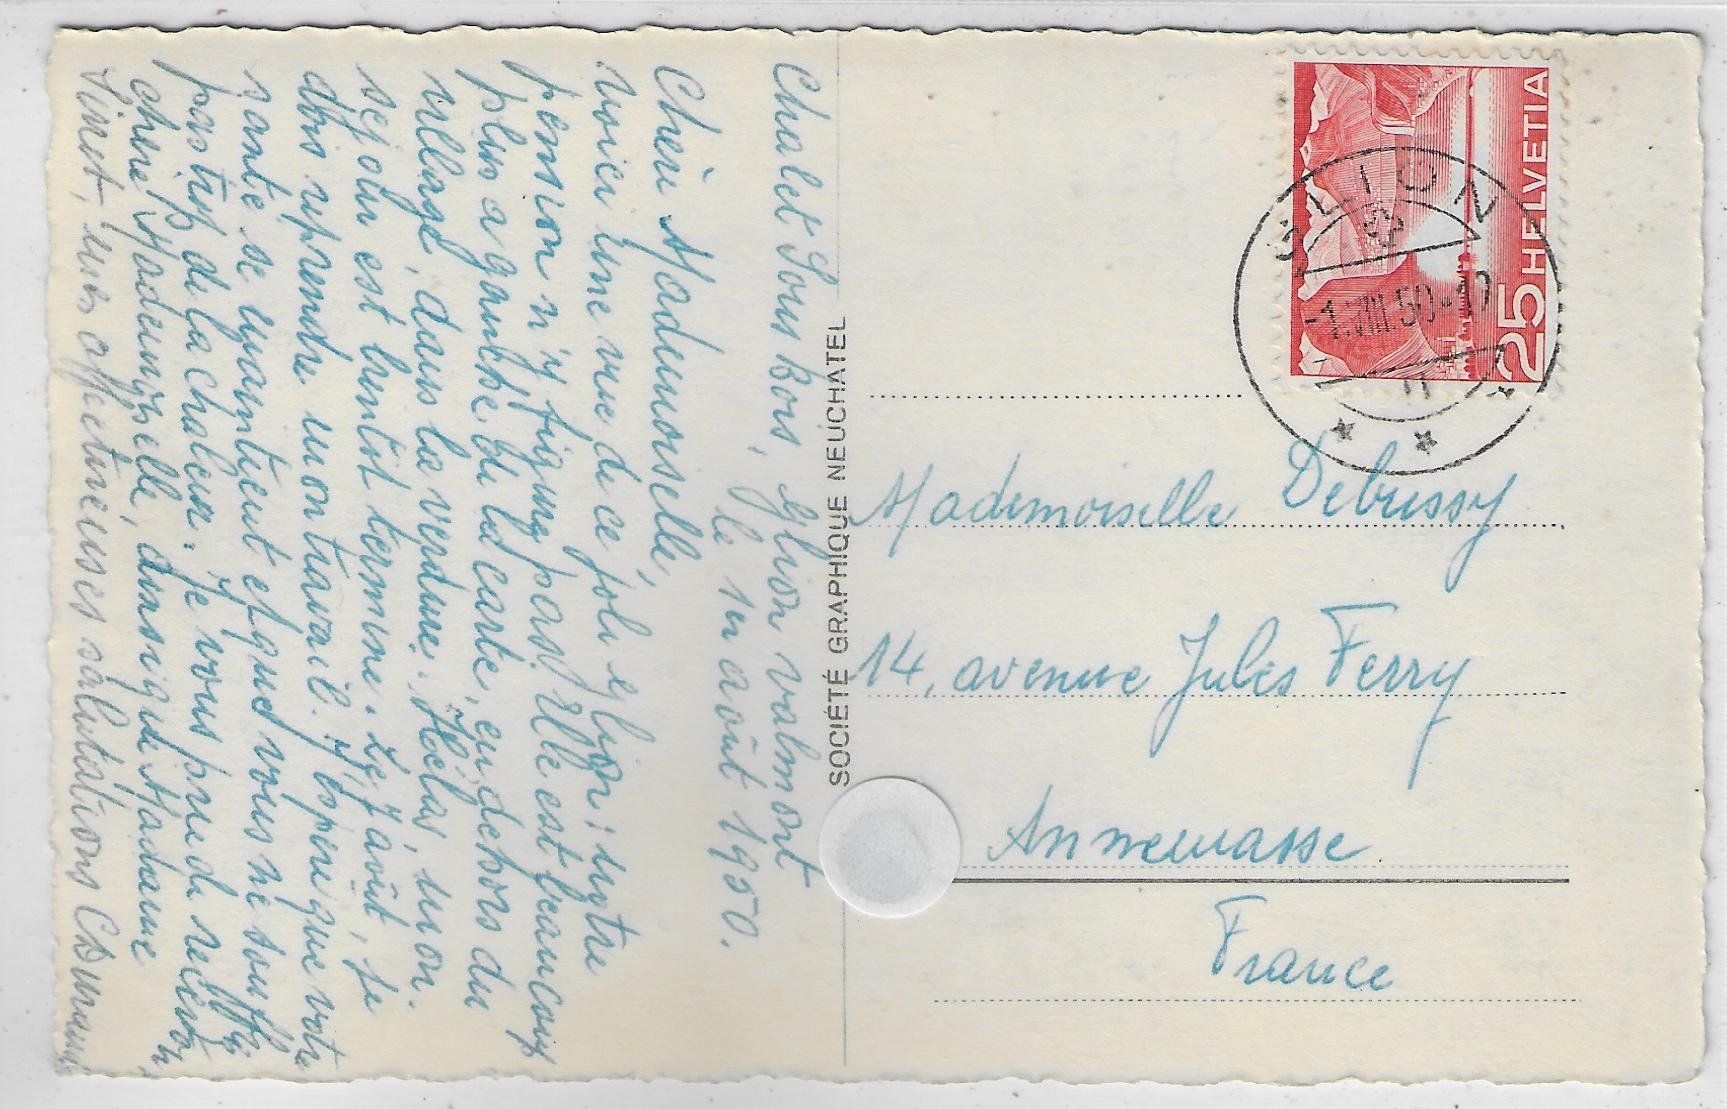 Chalet Sous Bois, Glion Valmont
le 1er août 1950.
Chère Mademoiselle,
voici une vue de ce joli Glion; notre
pension n'y figure pas. Elle est beaucoup
plus à gauche de la carte, en dehors du
village, dans la verdure. Hélas, mon
séjour est bientôt terminé. Le 7 août, je
dois reprendre mon travail. J'espère que votre
santé se maintient et que vous ne souffrez
pas trop de la chaleur. Je vous prie de recevoir,
chère Mademoiselle, ainsi que Madame
Sinet, mes affectueuses salutations
SOCIÉTÉ GRAPHIQUE NEUCHATEL
25 HELVETIA
GLION
-1.VIII.50-12
Mademoiselle Debussy
14, avenue Jules Ferry
Annemasse
France